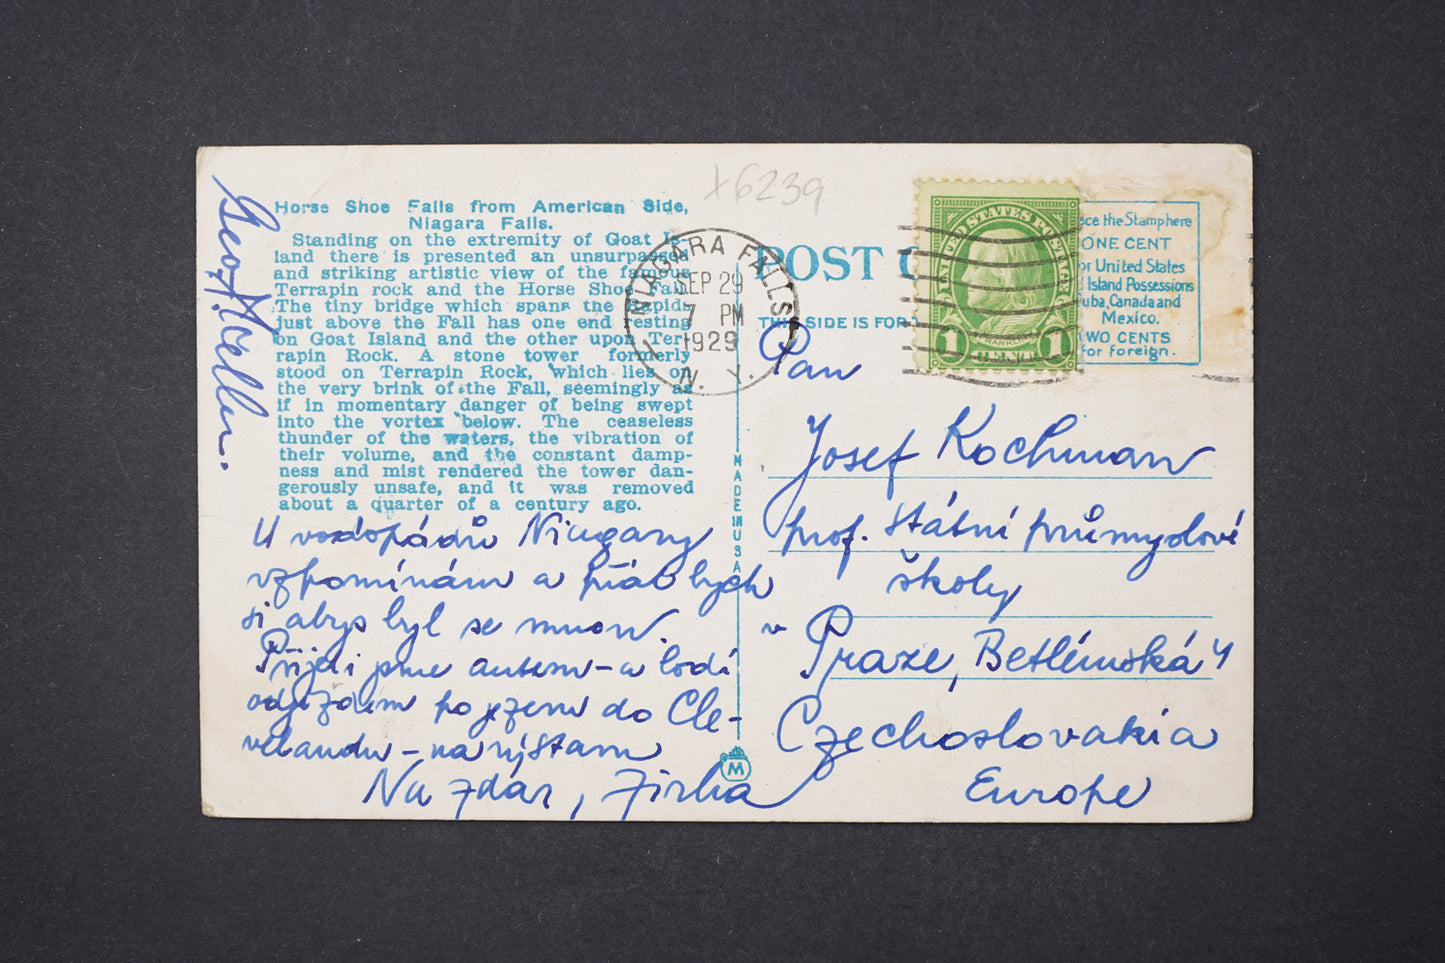 x6239
Horse Shoe Falls from American Side,
Niagara Falls.
Standing on the extremity of Goat Is-
land there is presented an unsurpassed
and striking artistic view of the famous
Terrapin rock and the Horse Shoe Fall.
The tiny bridge which spans the Rapids
just above the Fall has one end resting
on Goat Island and the other upon Ter-
rapin Rock. A stone tower formerly
stood on Terrapin Rock, which lies on
the very brink of the Fall, seemingly as
if in momentary danger of being swept
into the vortex below. The ceaseless
thunder of the waters, the vibration of
their volume, and the constant damp-
ness and mist rendered the tower dan-
gerously unsafe, and it was removed
about a quarter of a century ago.
U vodopádů Niagary
vzpomínám a přál bych
si abys byl se mnou.
Přijeli jsme autem - a lodí
odjíždím po jezeru do Cle-
velandu - na výstavu
Na zdar, Jirka
NIAGARA FALLS
SEP 29
7 PM
1929
N. Y.
POST C
THE SIDE IS FOR
MADE IN USA
M
UNITED STATES POSTAGE
FRANKLIN
1 CENT 1
ce the Stamp here
ONE CENT
or United States
Island Possessions
uba, Canada and
Mexico.
TWO CENTS
for Foreign.
Pan
Josef Kochman
prof. státní průmyslové
školy
v Praze, Betlémská 4
Czechoslovakia
Europe